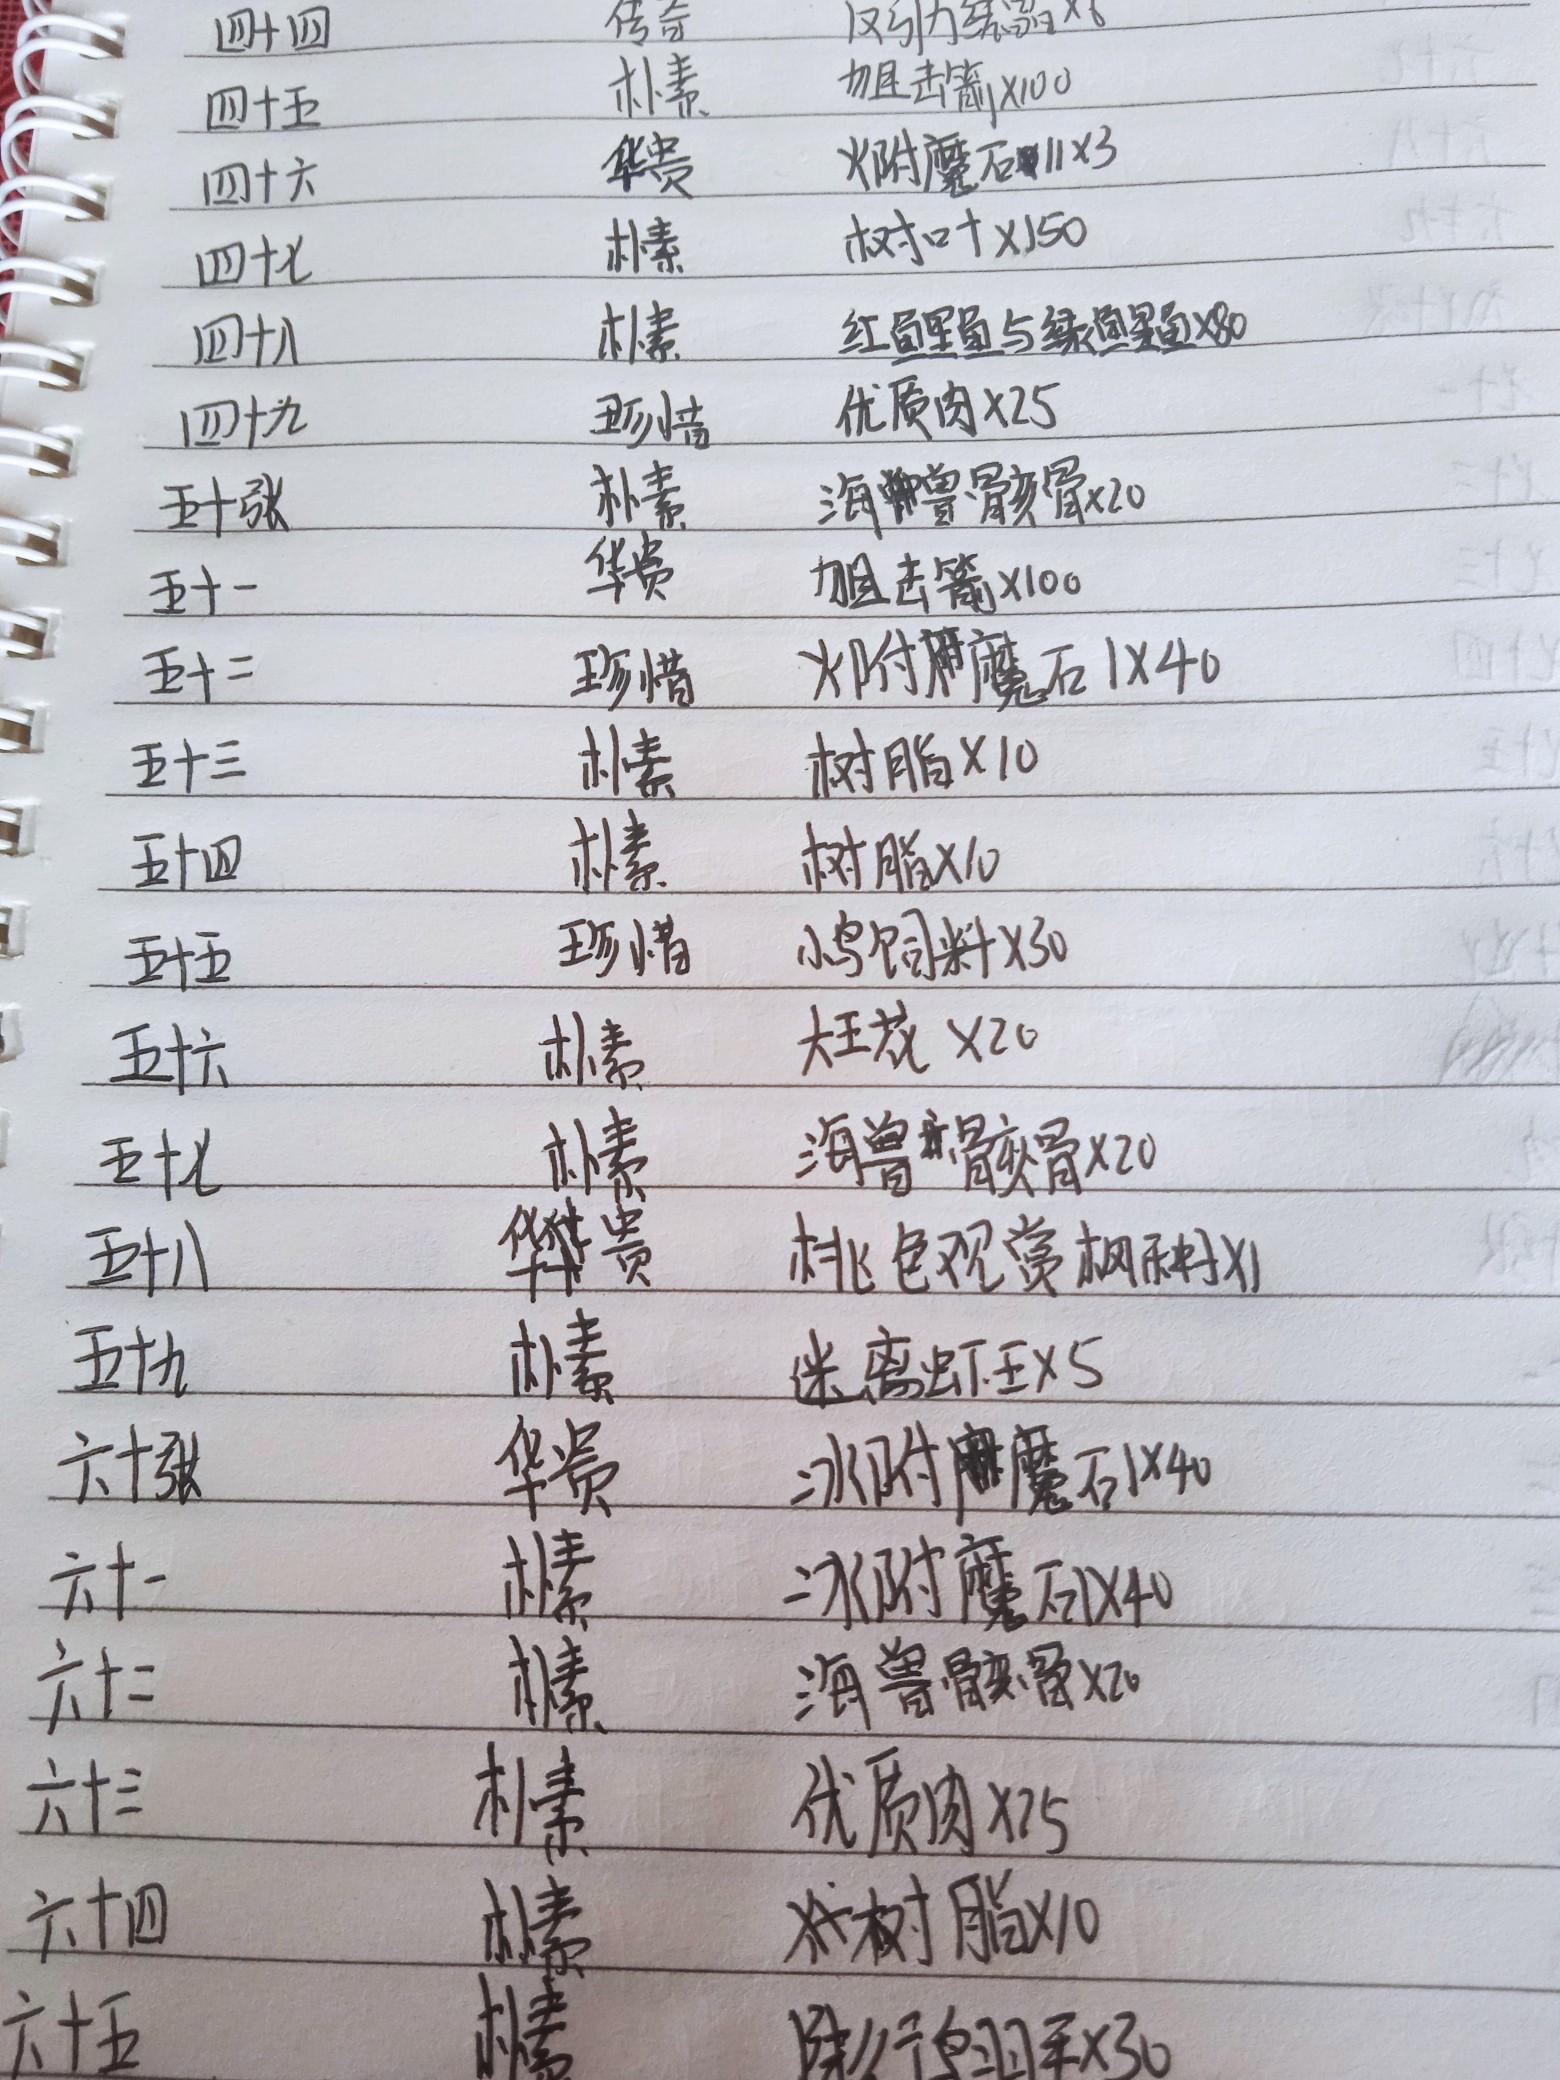 四十四 传奇 反引力结晶x6
四十五 朴素 狙击箭x100
四十六 华贵 火附魔石11x3
四十七 朴素 树叶x150
四十八 朴素 红鲤鱼与绿鲤鱼x80
四十九 珍惜 优质肉x25
五十张 朴素 海兽骸骨x20
五十一 华贵 狙击箭x100
五十二 珍惜 火附魔石1x40
五十三 朴素 树脂x10
五十四 朴素 树脂x10
五十五 珍惜 小鸟饲料x30
五十六 朴素 大王花x20
五十七 朴素 海兽骸骨x20
五十八 华贵 桃色观赏枫树x1
五十九 朴素 迷离虾王x5
六十张 华贵 冰附魔石1x40
六十一 朴素 冰附魔石1x40
六十二 朴素 海兽骸骨x20
六十三 朴素 优质肉x25
六十四 朴素 树脂x10
六十五 朴素 陆行鸟羽毛x30